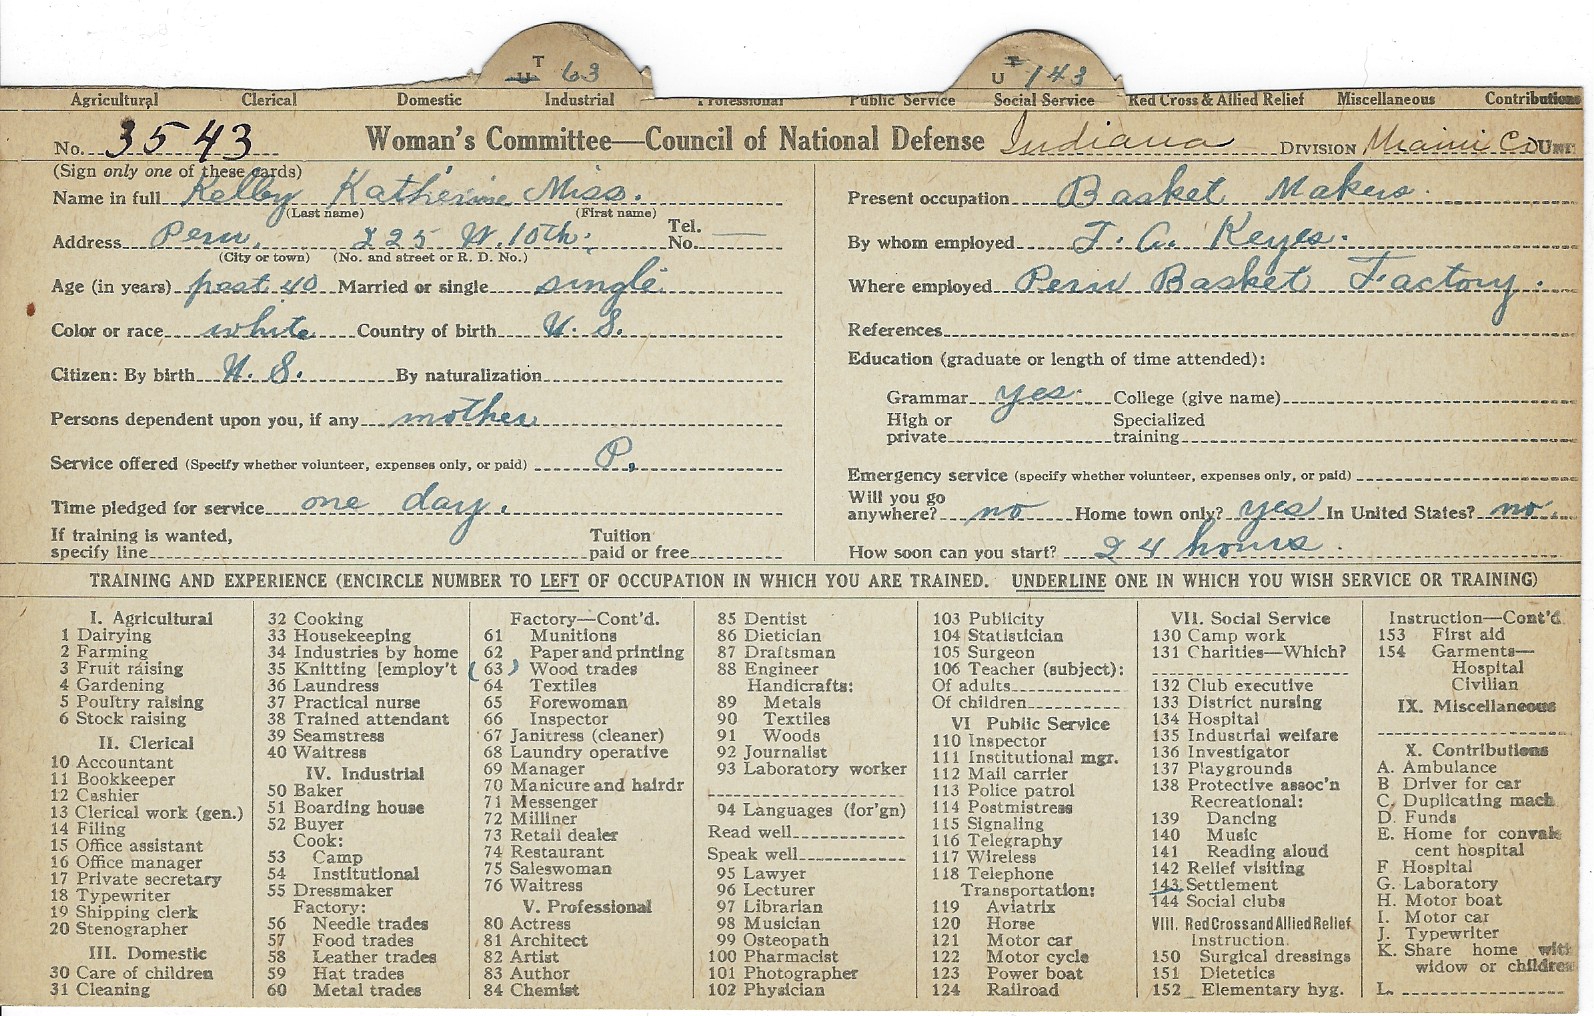 T
U 63
T
U 143
Agricultural Clerical Domestic Industrial Professional Public Service Social Service Red Cross & Allied Relief Miscellaneous Contributions
No. 3543 Woman's Committee—Council of National Defense Indiana DIVISION Miami Co UNIT
(Sign only one of these cards)
Name in full Kelby Katherine Miss.
(Last name) (First name)
Address Peru, 225 W. 10th. Tel. No. —
(City or town) (No. and street or R. D. No.)
Age (in years) past 40 Married or single single
Color or race white Country of birth U. S.
Citizen: By birth U. S. By naturalization
Persons dependent upon you, if any mother
Service offered (Specify whether volunteer, expenses only, or paid) P.
Time pledged for service one day.
If training is wanted, specify line Tuition paid or free
Present occupation Basket Makers.
By whom employed J. A. Keyes.
Where employed Peru Basket Factory.
References
Education (graduate or length of time attended):
Grammar yes. College (give name)
High or private Specialized training
Emergency service (specify whether volunteer, expenses only, or paid)
Will you go anywhere? no Home town only? yes In United States? no.
How soon can you start? 24 hours.
TRAINING AND EXPERIENCE (ENCIRCLE NUMBER TO LEFT OF OCCUPATION IN WHICH YOU ARE TRAINED. UNDERLINE ONE IN WHICH YOU WISH SERVICE OR TRAINING)
I. Agricultural
1 Dairying
2 Farming
3 Fruit raising
4 Gardening
5 Poultry raising
6 Stock raising
II. Clerical
10 Accountant
11 Bookkeeper
12 Cashier
13 Clerical work (gen.)
14 Filing
15 Office assistant
16 Office manager
17 Private secretary
18 Typewriter
19 Shipping clerk
20 Stenographer
III. Domestic
30 Care of children
31 Cleaning
32 Cooking
33 Housekeeping
34 Industries by home
35 Knitting [employ't
36 Laundress
37 Practical nurse
38 Trained attendant
39 Seamstress
40 Waitress
IV. Industrial
50 Baker
51 Boarding house
52 Buyer
Cook:
53 Camp
54 Institutional
55 Dressmaker
Factory:
56 Needle trades
57 Food trades
58 Leather trades
59 Hat trades
60 Metal trades
Factory—Cont'd.
61 Munitions
62 Paper and printing
(63) Wood trades
64 Textiles
65 Forewoman
66 Inspector
67 Janitress (cleaner)
68 Laundry operative
69 Manager
70 Manicure and hairdr
71 Messenger
72 Milliner
73 Retail dealer
74 Restaurant
75 Saleswoman
76 Waitress
V. Professional
80 Actress
81 Architect
82 Artist
83 Author
84 Chemist
85 Dentist
86 Dietician
87 Draftsman
88 Engineer
Handicrafts:
89 Metals
90 Textiles
91 Woods
92 Journalist
93 Laboratory worker
94 Languages (for'gn)
Read well
Speak well
95 Lawyer
96 Lecturer
97 Librarian
98 Musician
99 Osteopath
100 Pharmacist
101 Photographer
102 Physician
103 Publicity
104 Statistician
105 Surgeon
106 Teacher (subject):
Of adults
Of children
VI Public Service
110 Inspector
111 Institutional mgr.
112 Mail carrier
113 Police patrol
114 Postmistress
115 Signaling
116 Telegraphy
117 Wireless
118 Telephone
Transportation:
119 Aviatrix
120 Horse
121 Motor car
122 Motor cycle
123 Power boat
124 Railroad
VII. Social Service
130 Camp work
131 Charities—Which?
132 Club executive
133 District nursing
134 Hospital
135 Industrial welfare
136 Investigator
137 Playgrounds
138 Protective assoc'n
Recreational:
139 Dancing
140 Music
141 Reading aloud
142 Relief visiting
143 Settlement
144 Social clubs
VIII. Red Cross and Allied Relief
Instruction.
150 Surgical dressings
151 Dietetics
152 Elementary hyg.
Instruction—Cont'd.
153 First aid
154 Garments—
Hospital
Civilian
IX. Miscellaneous
X. Contributions
A. Ambulance
B Driver for car
C. Duplicating mach
D. Funds
E. Home for convales
cent hospital
F Hospital
G. Laboratory
H. Motor boat
I. Motor car
J. Typewriter
K. Share home with
widow or children
L.